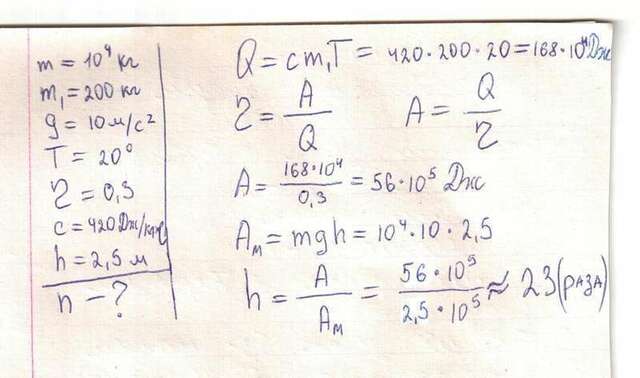 m = 10⁴ кг
m₁ = 200 кг
g = 10 м/с²
T = 20°
η = 0,3
c = 420 Дж/кг·°C
h = 2,5 м
n - ?
Q = cm₁T = 420·200·20 = 168·10⁴ Дж
η = A/Q A = Q/η
A = 168·10⁴/0,3 = 56·10⁵ Дж
Aм = mgh = 10⁴·10·2,5
h = A/Aм = 56·10⁵/2,5·10⁵ ≈ 23 (раза)